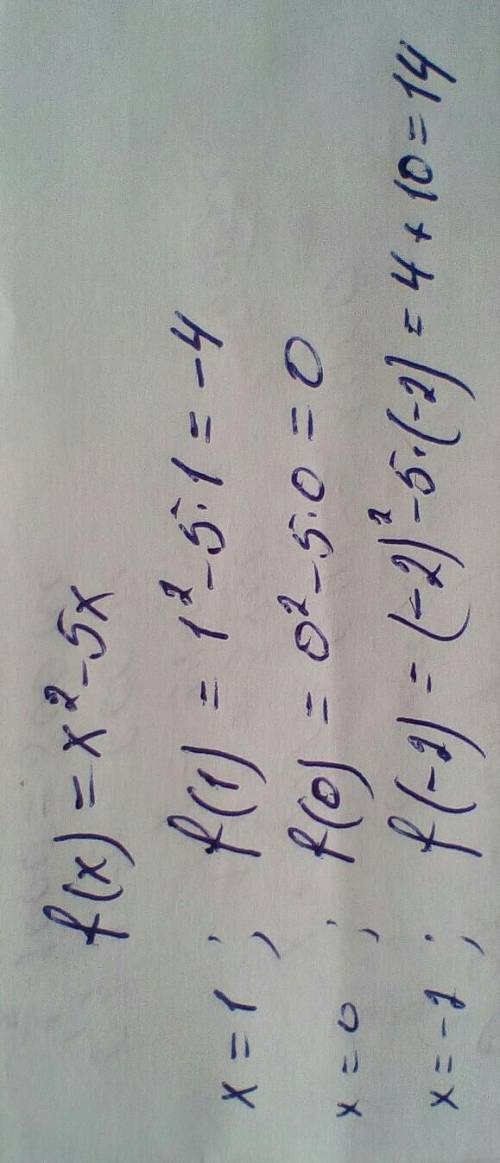 f(x) = x² - 5x
x = 1 ; f(1) = 1² - 5·1 = -4
x = 0 ; f(0) = 0² - 5·0 = 0
x = -2 ; f(-2) = (-2)² - 5·(-2) = 4 + 10 = 14